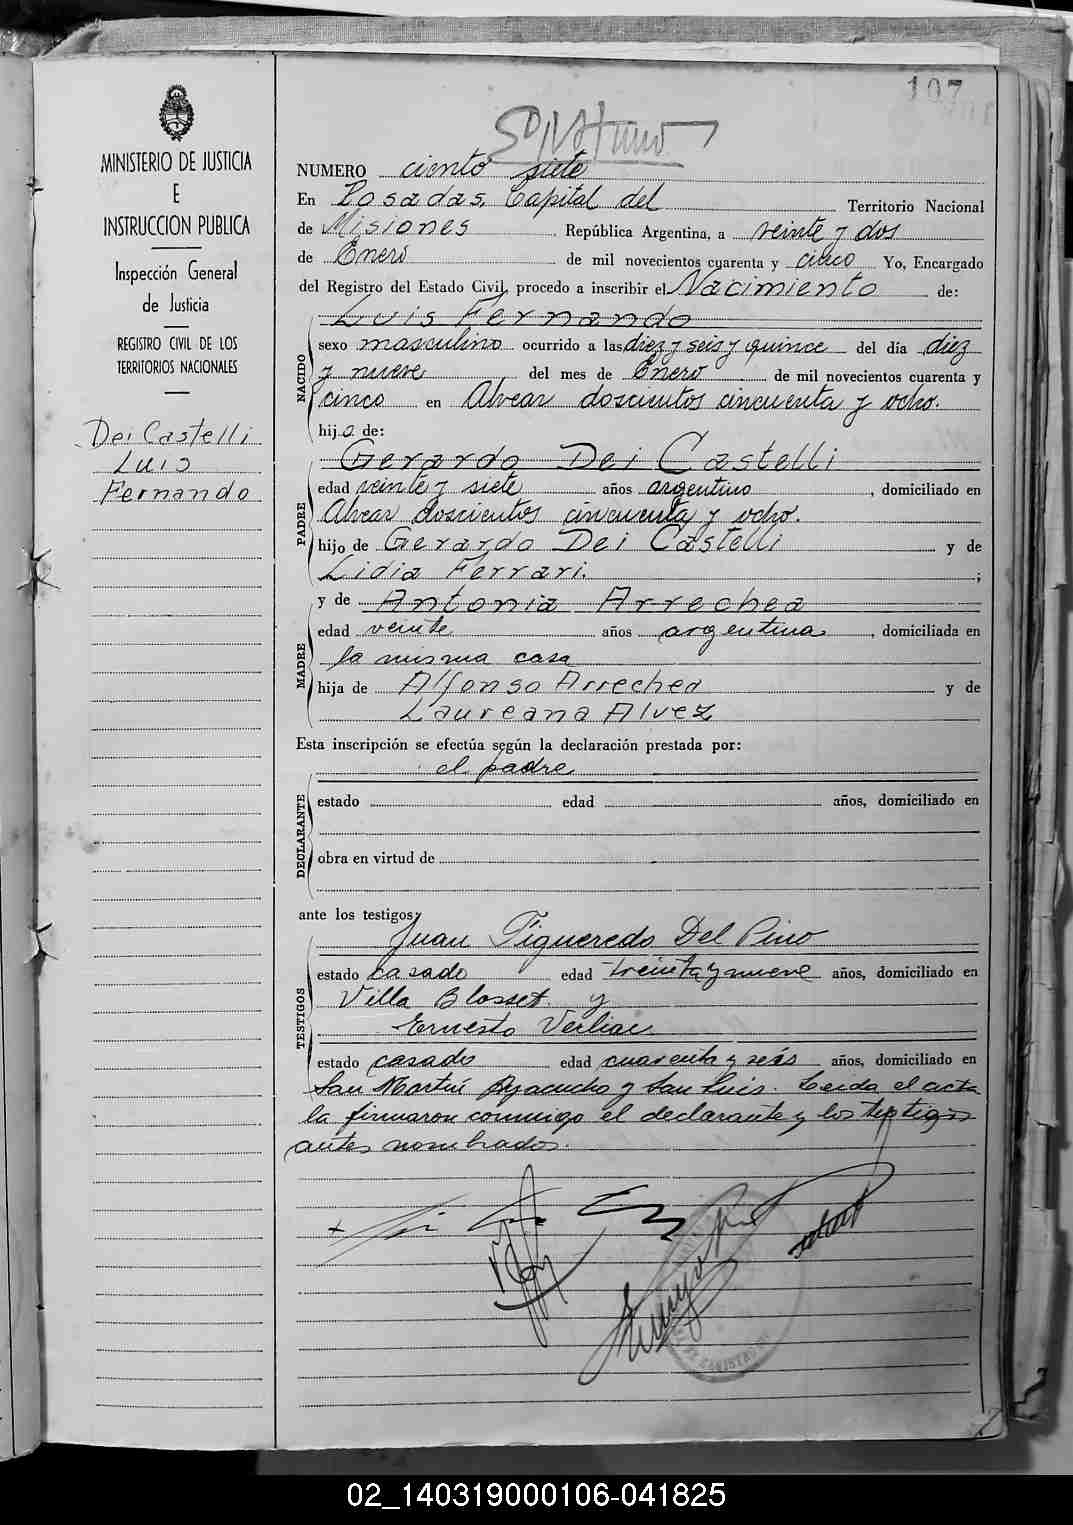 107
MINISTERIO DE JUSTICIA
E
INSTRUCCION PUBLICA
Inspección General
de Justicia
REGISTRO CIVIL DE LOS
TERRITORIOS NACIONALES
Dei Castelli
Luis
Fernando
NUMERO ciento siete
En Posadas, Capital del Territorio Nacional
de Misiones República Argentina, a veinte y dos
de Enero de mil novecientos cuarenta y cinco Yo, Encargado
del Registro del Estado Civil, procedo a inscribir el Nacimiento de:
NACIDO
Luis Fernando
sexo masculino ocurrido a las diez y seis y quince del día diez
y nueve del mes de Enero de mil novecientos cuarenta y
cinco en Alvear doscientos cincuenta y ocho.
hijo de:
PADRE
Gerardo Dei Castelli
edad veinte y siete años argentino, domiciliado en
Alvear doscientos cincuenta y ocho.
hijo de Gerardo Dei Castelli y de
Lidia Ferrari. ;
MADRE
y de Antonia Arrechea
edad veinte años argentina, domiciliada en
la misma casa
hija de Alfonso Arrechea y de
Laureana Alvez
Esta inscripción se efectúa según la declaración prestada por:
el padre
DECLARANTE
estado edad años, domiciliado en
obra en virtud de
ante los testigos;
TESTIGOS
Juan Figueredo Del Pino
estado casado edad treinta y nueve años, domiciliado en
Villa Blosset. y
Ernesto
estado casado edad cuarenta y seis años, domiciliado en
San Martín Ayacucho y San Luis. Leida el acta
la firmaron conmigo el declarante y los testigos
antes nombrados.
02_140319000106-041825